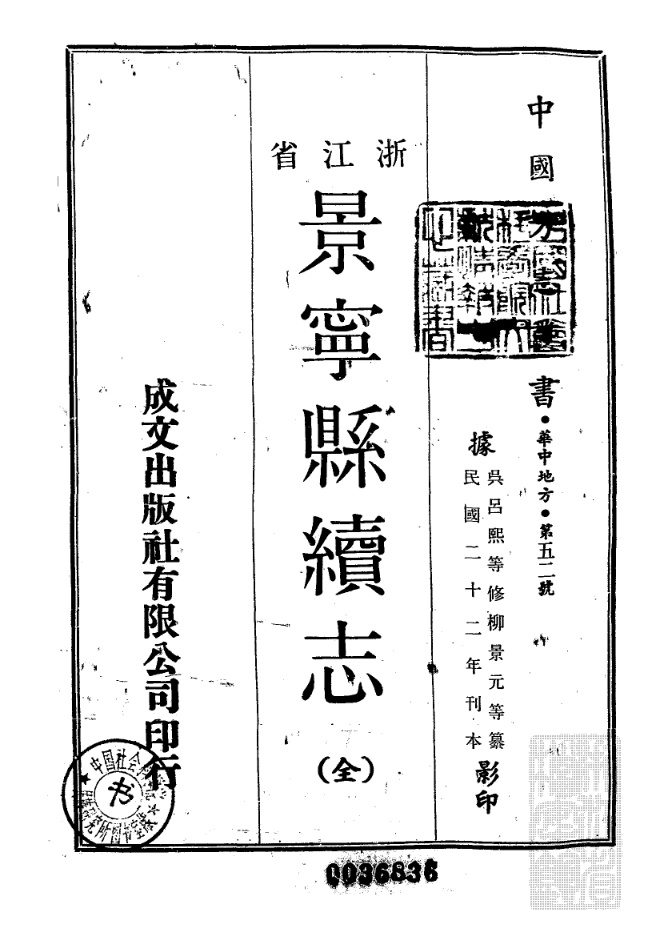 中國
書•華中地方•第五二號
據
吳呂熙等修柳景元等纂
民國二十二年刊本
影印
浙江省
景寧縣續志
(全)
成文出版社有限公司印行
中国社会
书
0036836